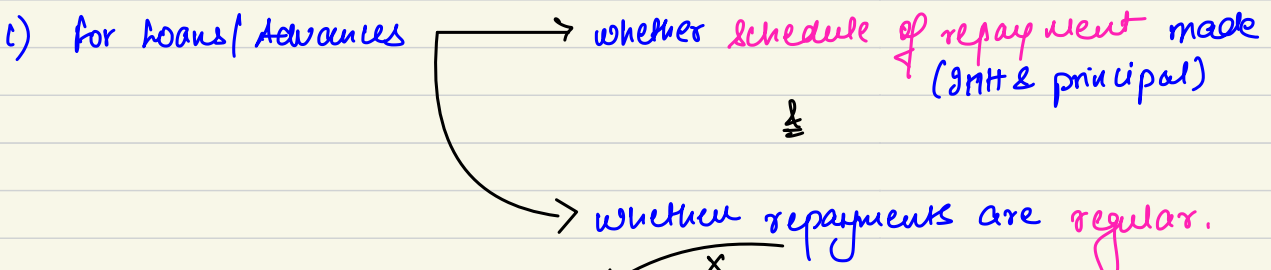 c) for Loans/Advances → whether schedule of repayment made
(Intt & principal)
&
→ whether repayments are regular.
x